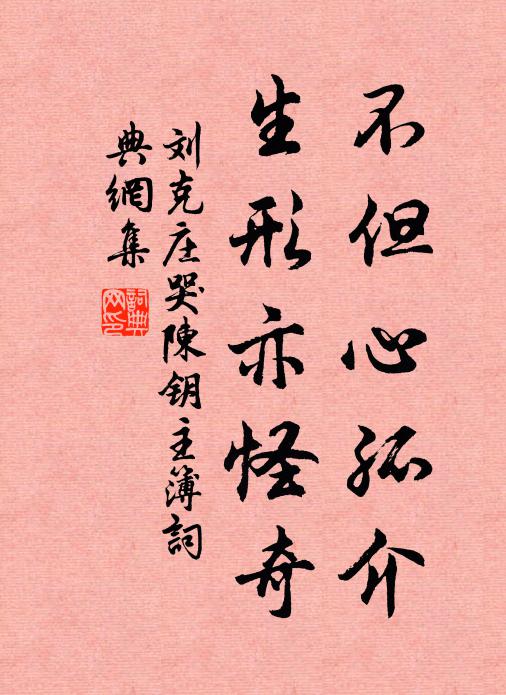 不但心孤介
生形亦怪奇
刘克庄哭陳钥主簿詞
典網集
詞典网印